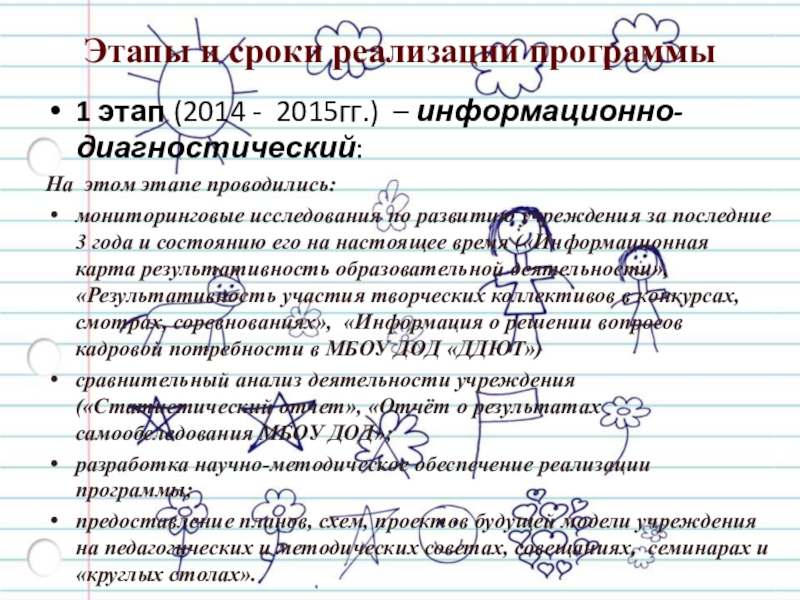 Этапы и сроки реализации программы
• 1 этап (2014 - 2015гг.) – информационно-
диагностический:
На этом этапе проводились:
• мониторинговые исследования по развитию учреждения за последние
3 года и состоянию его на настоящее время («Информационная
карта результативность образовательной деятельности»,
«Результативность участия творческих коллективов в конкурсах,
смотрах, соревнованиях», «Информация о решении вопросов
кадровой потребности в МБОУ ДОД «ДДЮТ»)
• сравнительный анализ деятельности учреждения
(«Статистический отчет», «Отчёт о результатах
самообследования МБОУ ДОД»;
• разработка научно-методическое обеспечение реализации
программы;
• предоставление планов, схем, проектов будущей модели учреждения
на педагогических и методических советах, совещаниях, семинарах и
«круглых столах».